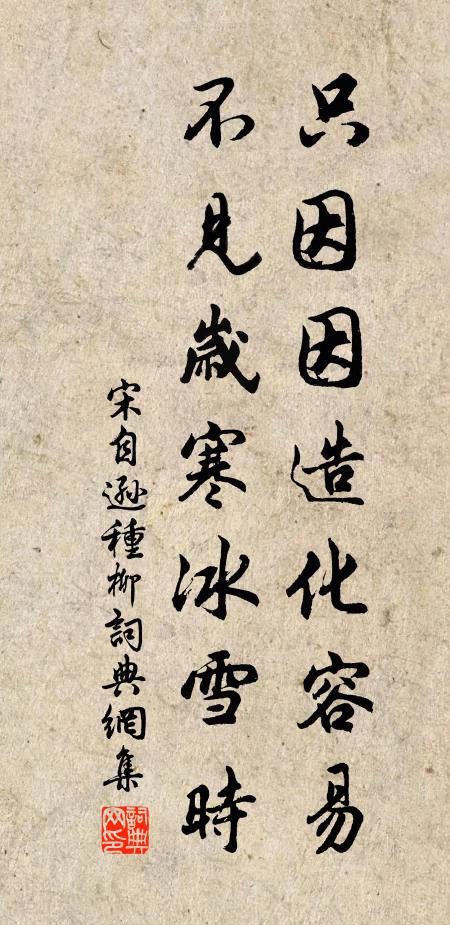 只因因造化容易
不見歲寒冰雪時
宋自遜種柳詞典網集
詞典網印